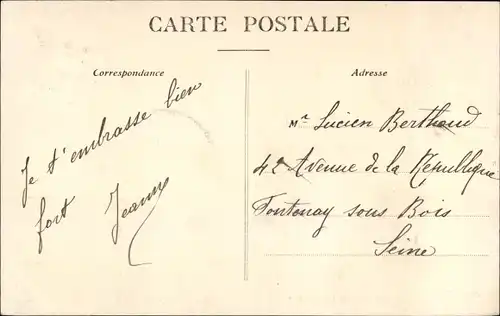 CARTE POSTALE
Correspondance
Je t'embrasse bien
fort Jeanne
Adresse
Mr Lucien Berthoud
42 Avenue de la République
Fontenay sous Bois
Seine